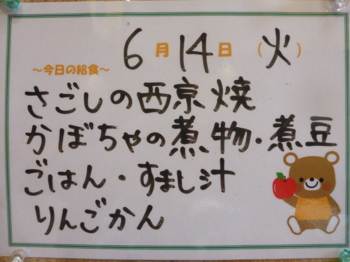 6月14日（火）
～今日の給食～
さごしの西京焼
かぼちゃの煮物・煮豆
ごはん・すまし汁
りんごかん